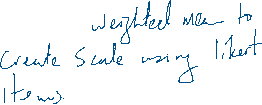 weighted mean to
create scale using likert
items